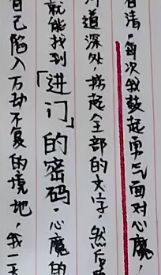 音清,每次我鼓起勇气面对心魔,
道深处,捞起全部的文字,然后
就能找到「进门」的密码,心魔的
自己陷入万劫不复的境地,我一